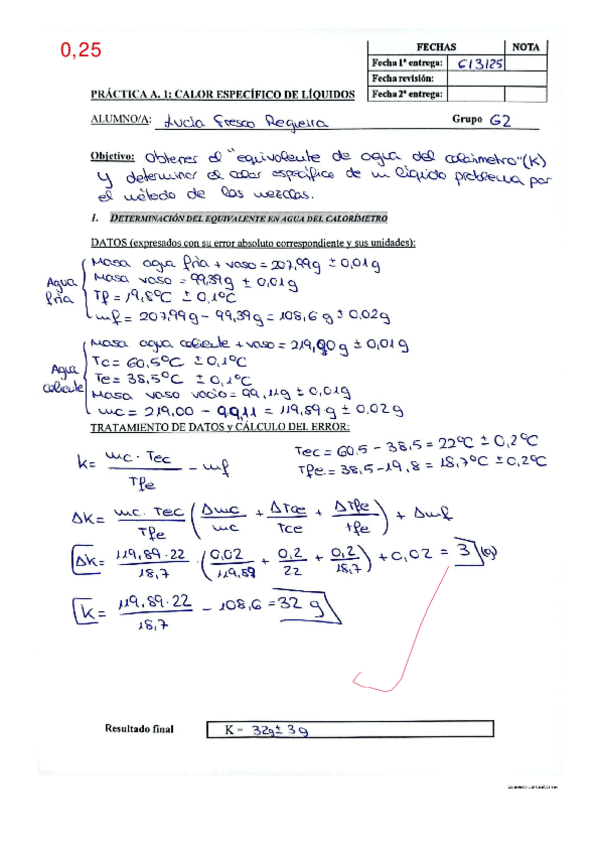 0,25
FECHAS NOTA
Fecha 1ª entrega: 6/3/25
Fecha revisión:
Fecha 2ª entrega:
PRÁCTICA A. 1: CALOR ESPECÍFICO DE LÍQUIDOS
ALUMNO/A: Lucía Fresco Regueira Grupo G2
Objetivo: Obtener el "equivalente de agua del calorímetro" (K)
y determinar el calor específico de un líquido problema por
el método de las mezclas.
1. DETERMINACIÓN DEL EQUIVALENTE EN AGUA DEL CALORÍMETRO
DATOS (expresados con su error absoluto correspondiente y sus unidades):
Agua fría
Masa agua fría + vaso = 207,99g ± 0,01g
Masa vaso = 99,39g ± 0,01g
Tf = 19,8ºC ± 0,1ºC
mf = 207,99g - 99,39g = 108,6g ± 0,02g
Agua caliente
Masa agua caliente + vaso = 219,00g ± 0,01g
Tc = 60,5ºC ± 0,1ºC
Te = 38,5ºC ± 0,1ºC
Masa vaso vacío = 99,11g ± 0,01g
mc = 219,00 - 99,11 = 119,89g ± 0,02g
TRATAMIENTO DE DATOS y CÁLCULO DEL ERROR:
k = mc · Tec / Tfe - mf
Tec = 60,5 - 38,5 = 22ºC ± 0,2ºC
Tfe = 38,5 - 19,8 = 18,7ºC ± 0,2ºC
Δk = mc. Tec / Tfe (Δmc / mc + ΔTce / Tce + ΔTfe / tfe) + Δmf
Δk = 119,89·22 / 18,7 · (0,02 / 119,89 + 0,2 / 22 + 0,2 / 18,7) + 0,02 = 3 (g)
k = 119,89·22 / 18,7 - 108,6 = 32 g
Resultado final K = 32g ± 3g